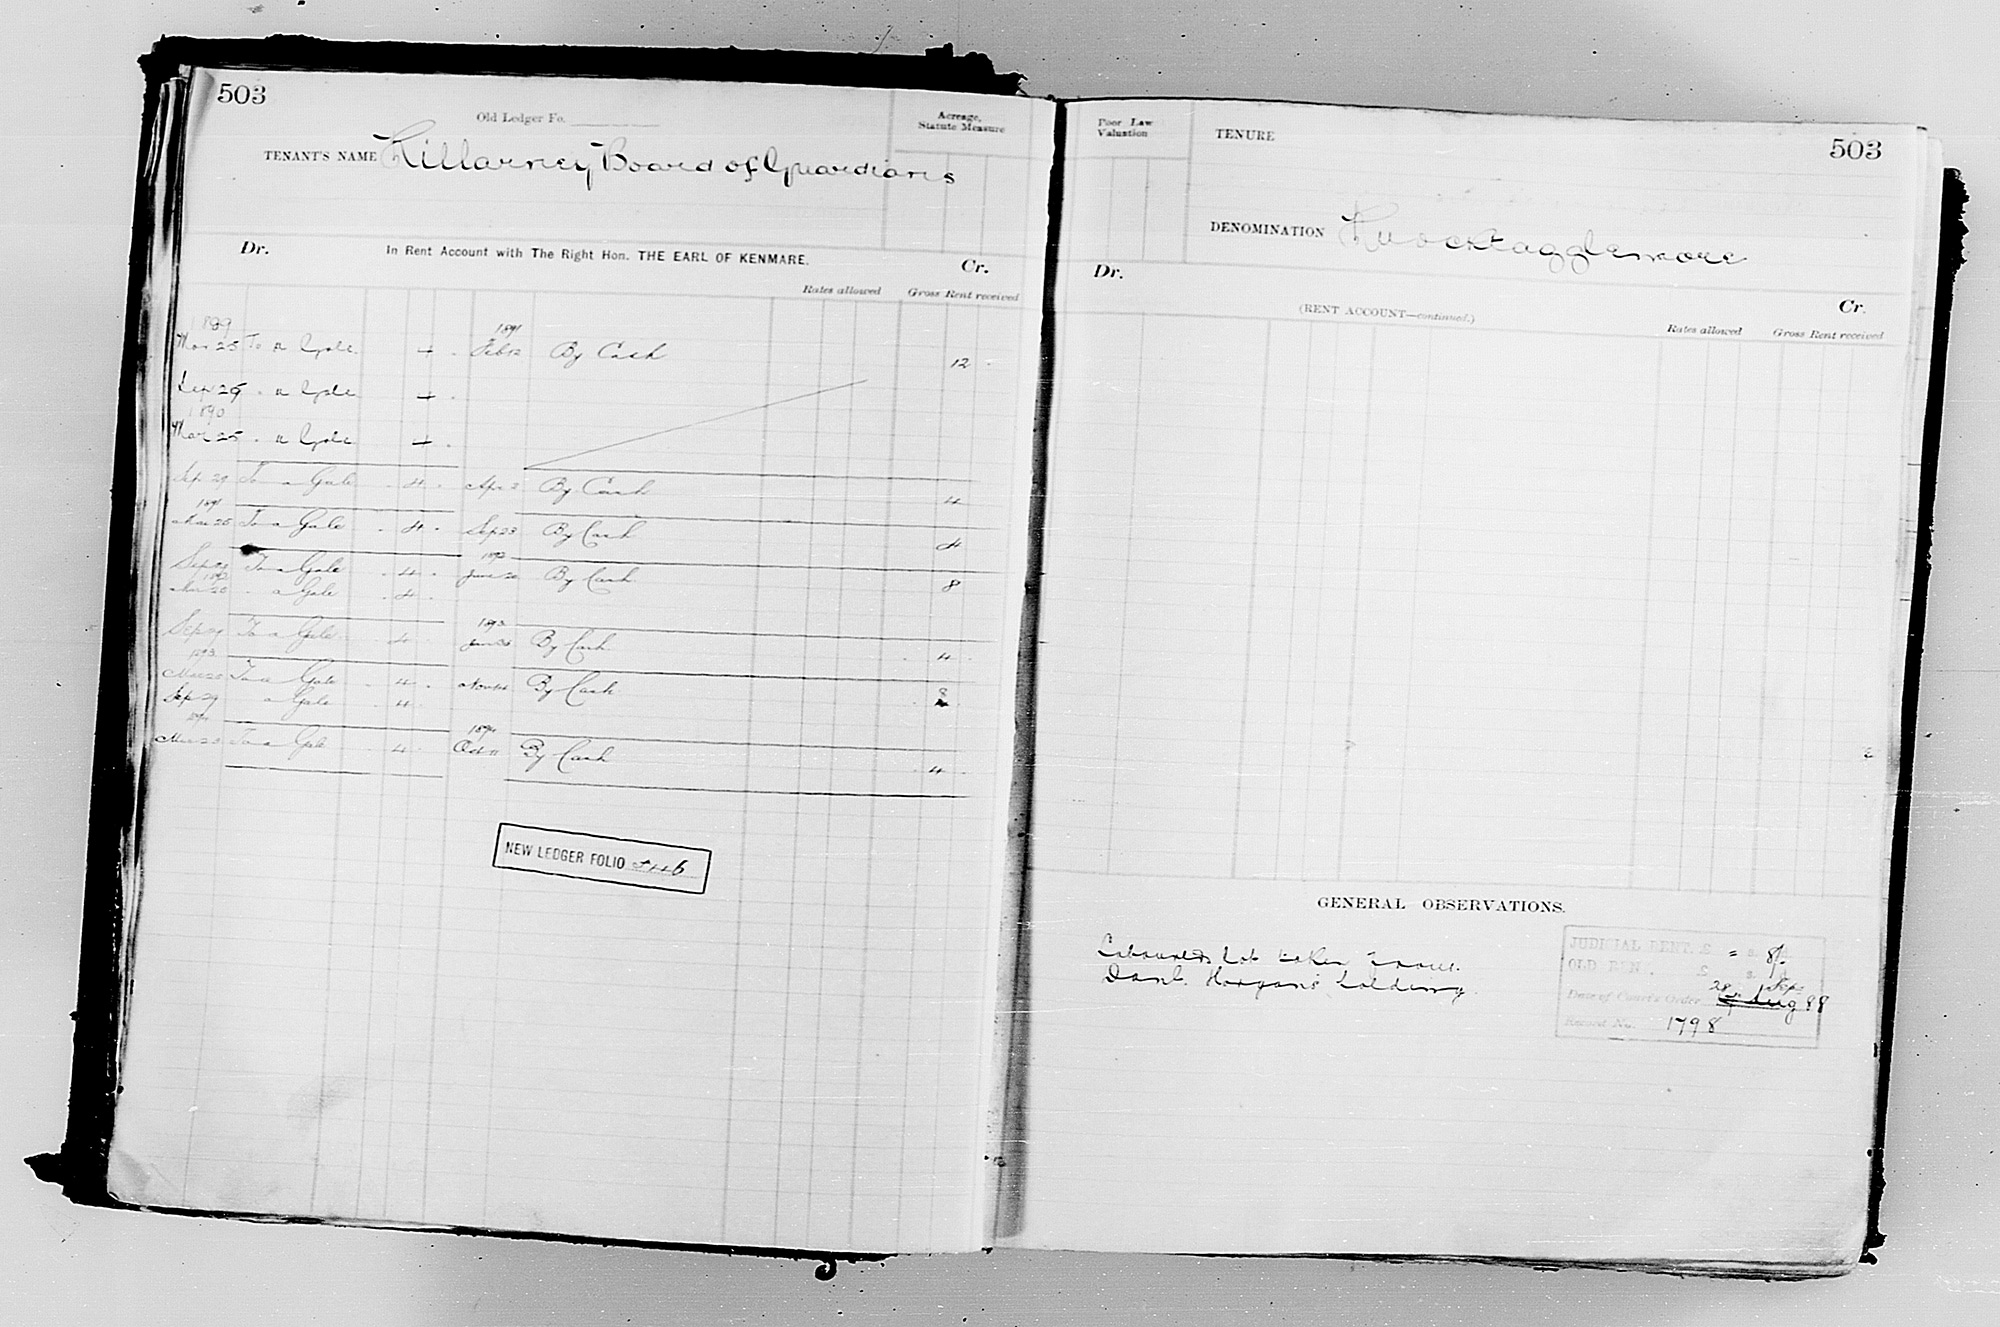 503
Old Ledger Fo.
Acreage, Statute Measure
TENANT'S NAME Killarney Board of Guardians
Dr. In Rent Account with The Right Hon. THE EARL OF KENMARE. Cr.
Rates allowed Gross Rent received
1889 1891
Mar 25 To a Gale 4 Feb 12 By Cash 12
Sep 29 " a Gale 4
1890
Mar 25 " a Gale 4
Sep 29 To a Gale 4 Apr 2 By Cash 4
1891
Mar 25 To a Gale 4 Sep 23 By Cash 4
1892
Sep 29 To a Gale 4 June 20 By Cash 8
1892
Mar 25 " a Gale 4
1893
Sep 29 To a Gale 4 By Cash 4
1893
Mar 25 To a Gale 4 Nov 14 By Cash 8
Sep 29 a Gale 4
1894 1894
Mar 25 To a Gale 4 Oct 11 By Cash 4
NEW LEDGER FOLIO
503
Poor Law Valuation
TENURE
DENOMINATION Knocktagglemore
Dr. Cr.
(RENT ACCOUNT—continued.)
Rates allowed Gross Rent received
GENERAL OBSERVATIONS.
Labourers plot taken from
Danl. Horgan's holding
JUDICIAL RENT, £ " s. 8/-
OLD RENT, £ s.
28 Sep
Date of Court's Order Aug 88
Record No. 1798